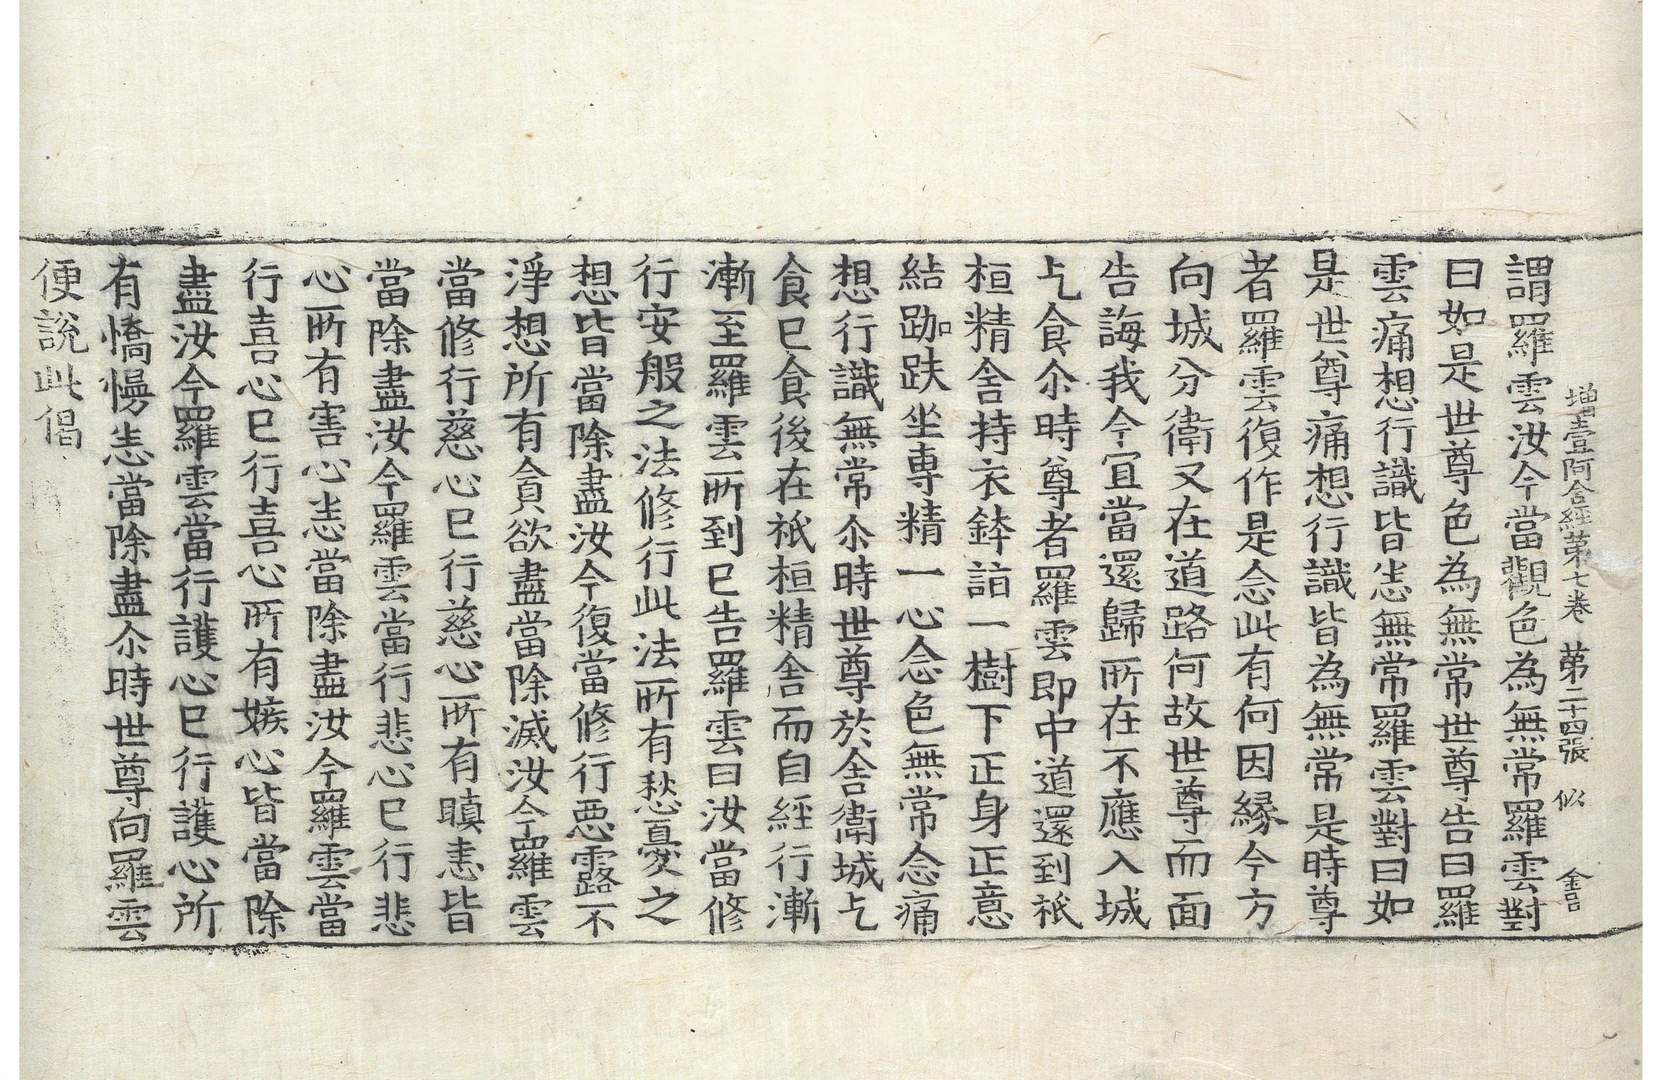 增壹阿含經第七卷 第二十四張 似
謂羅雲汝今當觀色為無常羅雲對
曰如是世尊色為無常世尊告曰羅
雲痛想行識皆悉無常羅雲對曰如
是世尊痛想行識皆為無常是時尊
者羅雲復作是念此有何因緣今方
向城分衛又在道路何故世尊而面
告誨我今宜當還歸所在不應入城
乞食尒時尊者羅雲即中道還到祇
桓精舍持衣鉢詣一樹下正身正意
結跏趺坐專精一心念色無常念痛
想行識無常尒時世尊於舍衛城乞
食已食後在祇桓精舍而自經行漸
漸至羅雲所到已告羅雲曰汝當修
行安般之法修行此法所有愁憂之
想皆當除盡汝今復當修行惡露不
淨想所有貪欲盡當除滅汝今羅雲
當修行慈心已行慈心所有瞋恚皆
當除盡汝今羅雲當行悲心已行悲
心所有害心悉當除盡汝今羅雲當
行喜心已行喜心所有嫉心皆當除
盡汝今羅雲當行護心已行護心所
有憍慢悉當除盡尒時世尊向羅雲
便說此偈